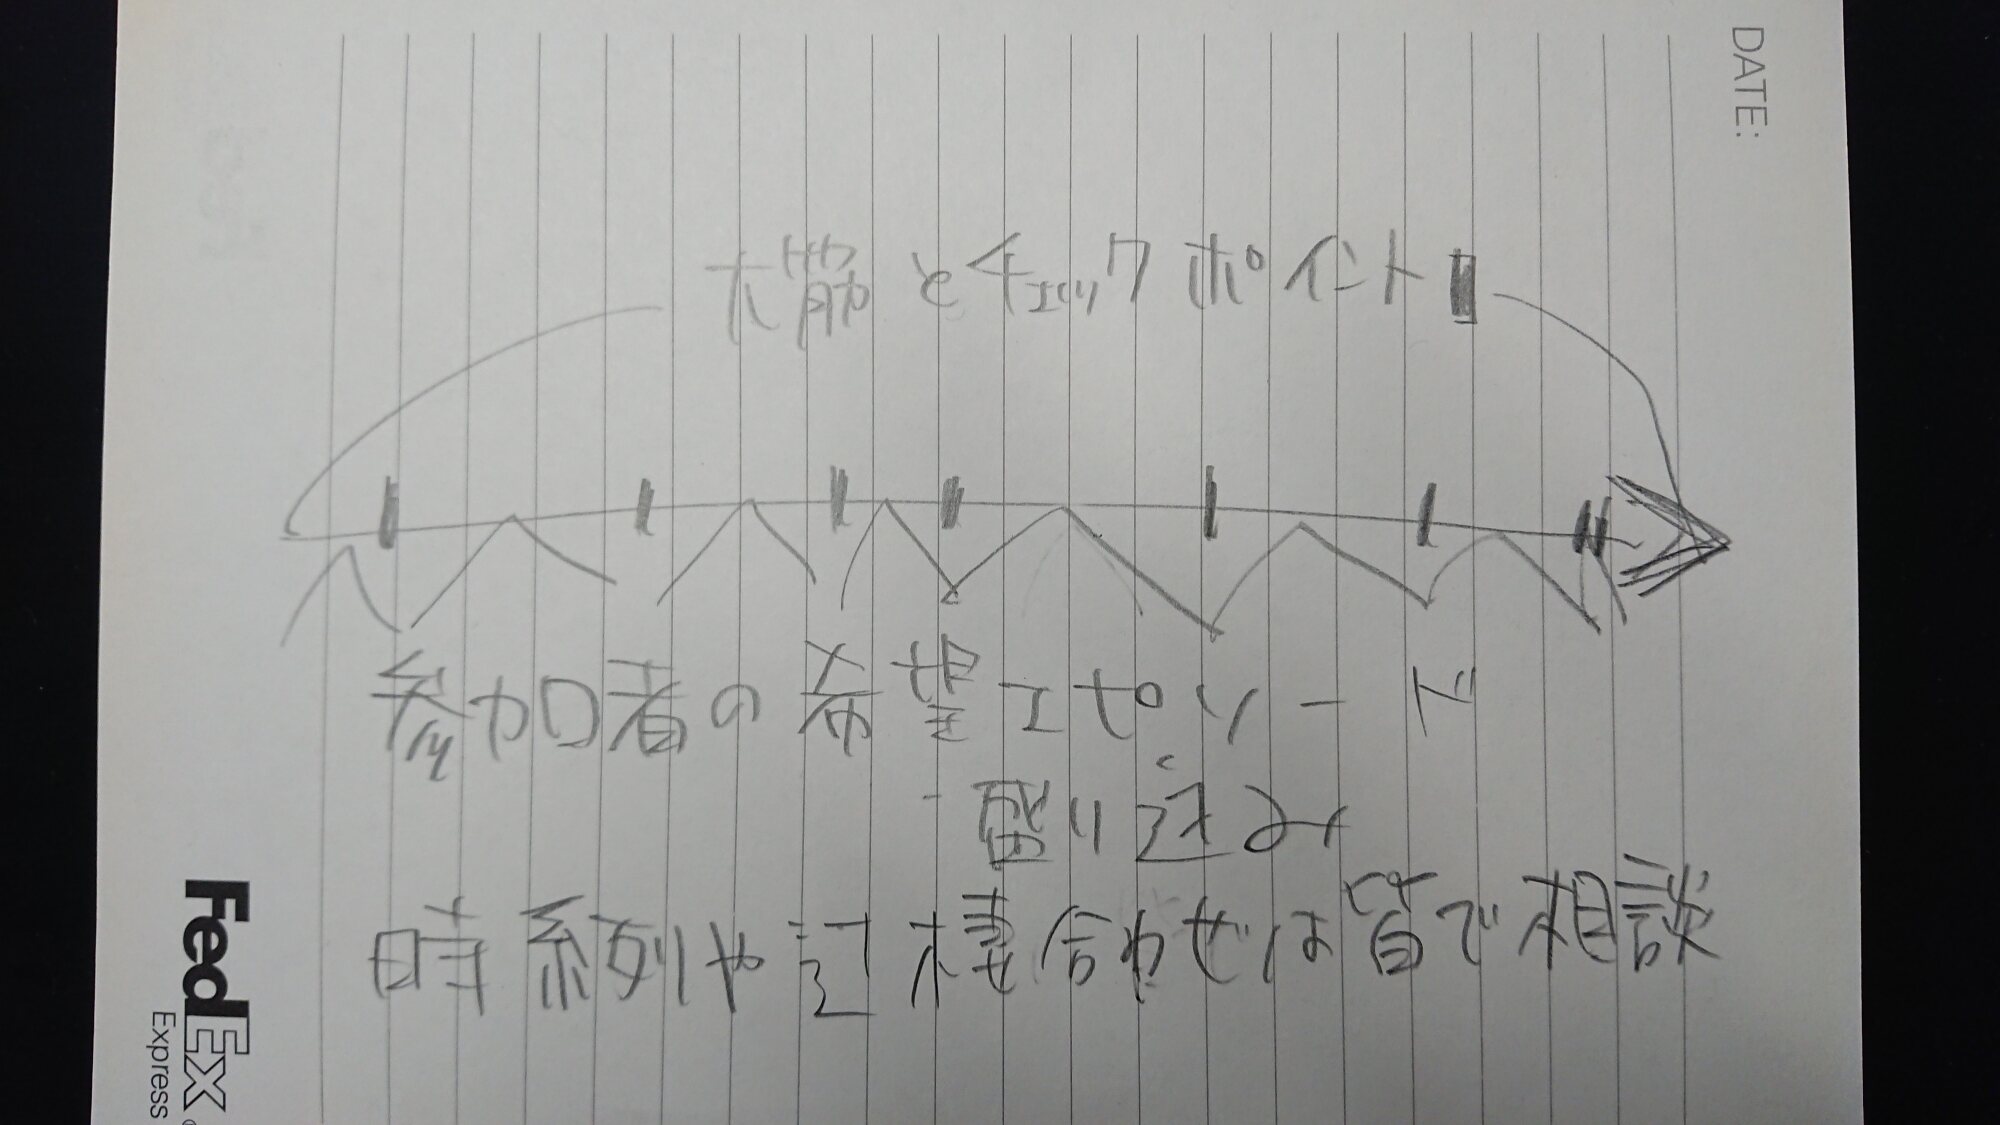 大筋とチェックポイント
参加者の希望エピソード
盛り込み
時系列や辻褄合わせは皆で相談
DATE:
FedEx
Express